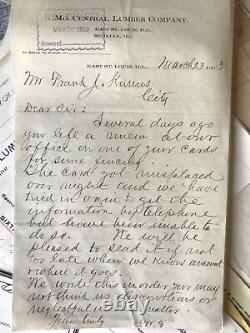 Mo. CENTRAL LUMBER COMPANY.
EAST ST. LOUIS, ILL.
CENTRALIA, ILL.
Answered
EAST ST. LOUIS, ILL. March 13 3
Mr Frank J.
City
Dear Sir:
Several days ago
you left a at our
office on one of your cards
for some
The card got misplaced
over night and we have
tried in vain to get the
information by telephone
but have been unable to
do so. We will be
pleased to send it if not
too late when we know amount
& where it goes.
We write this in order you may
not think us discourteous or
neglectful in the matter
Yours truly